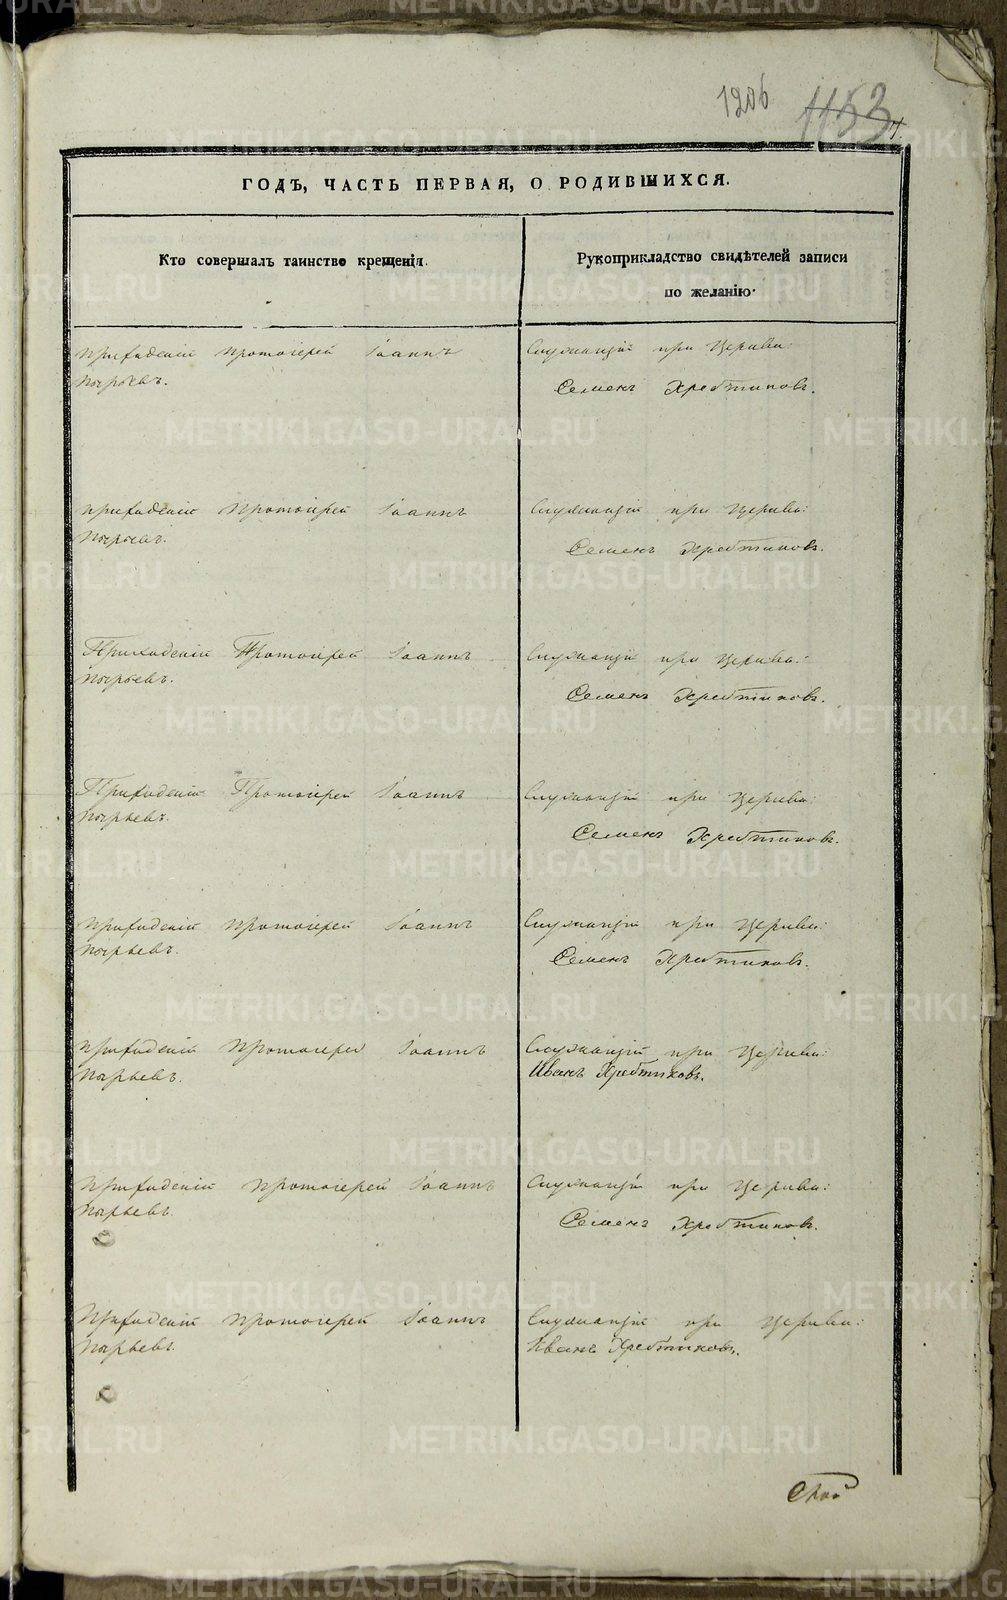 1206 1153
ГОДЪ, ЧАСТЬ ПЕРВАЯ, О РОДИВШИХСЯ.
Кто совершалъ таинство крещенія.
Рукоприкладство свидѣтелей записи
по желанію.
Приходскій Протоіерей Іоаннъ
Служащій при Церкви:
Семенъ Хребтиковъ.
Приходскій Протоіерей Іоаннъ
Служащій при Церкви:
Семенъ Хребтиковъ.
Приходскій Протоіерей Іоаннъ
Служащій при Церкви:
Семенъ Хребтиковъ.
Приходскій Протоіерей Іоаннъ
Служащій при Церкви:
Семенъ Хребтиковъ.
Приходскій Протоіерей Іоаннъ
Служащій при Церкви:
Семенъ Хребтиковъ.
Приходскій Протоіерей Іоаннъ
Служащій при Церкви:
Иванъ Хребтиковъ.
Приходскій Протоіерей Іоаннъ
Служащій при Церкви:
Семенъ Хребтиковъ.
Приходскій Протоіерей Іоаннъ
Служащій при Церкви:
Иванъ Хребтиковъ.
METRIKI.GASO-URAL.RU